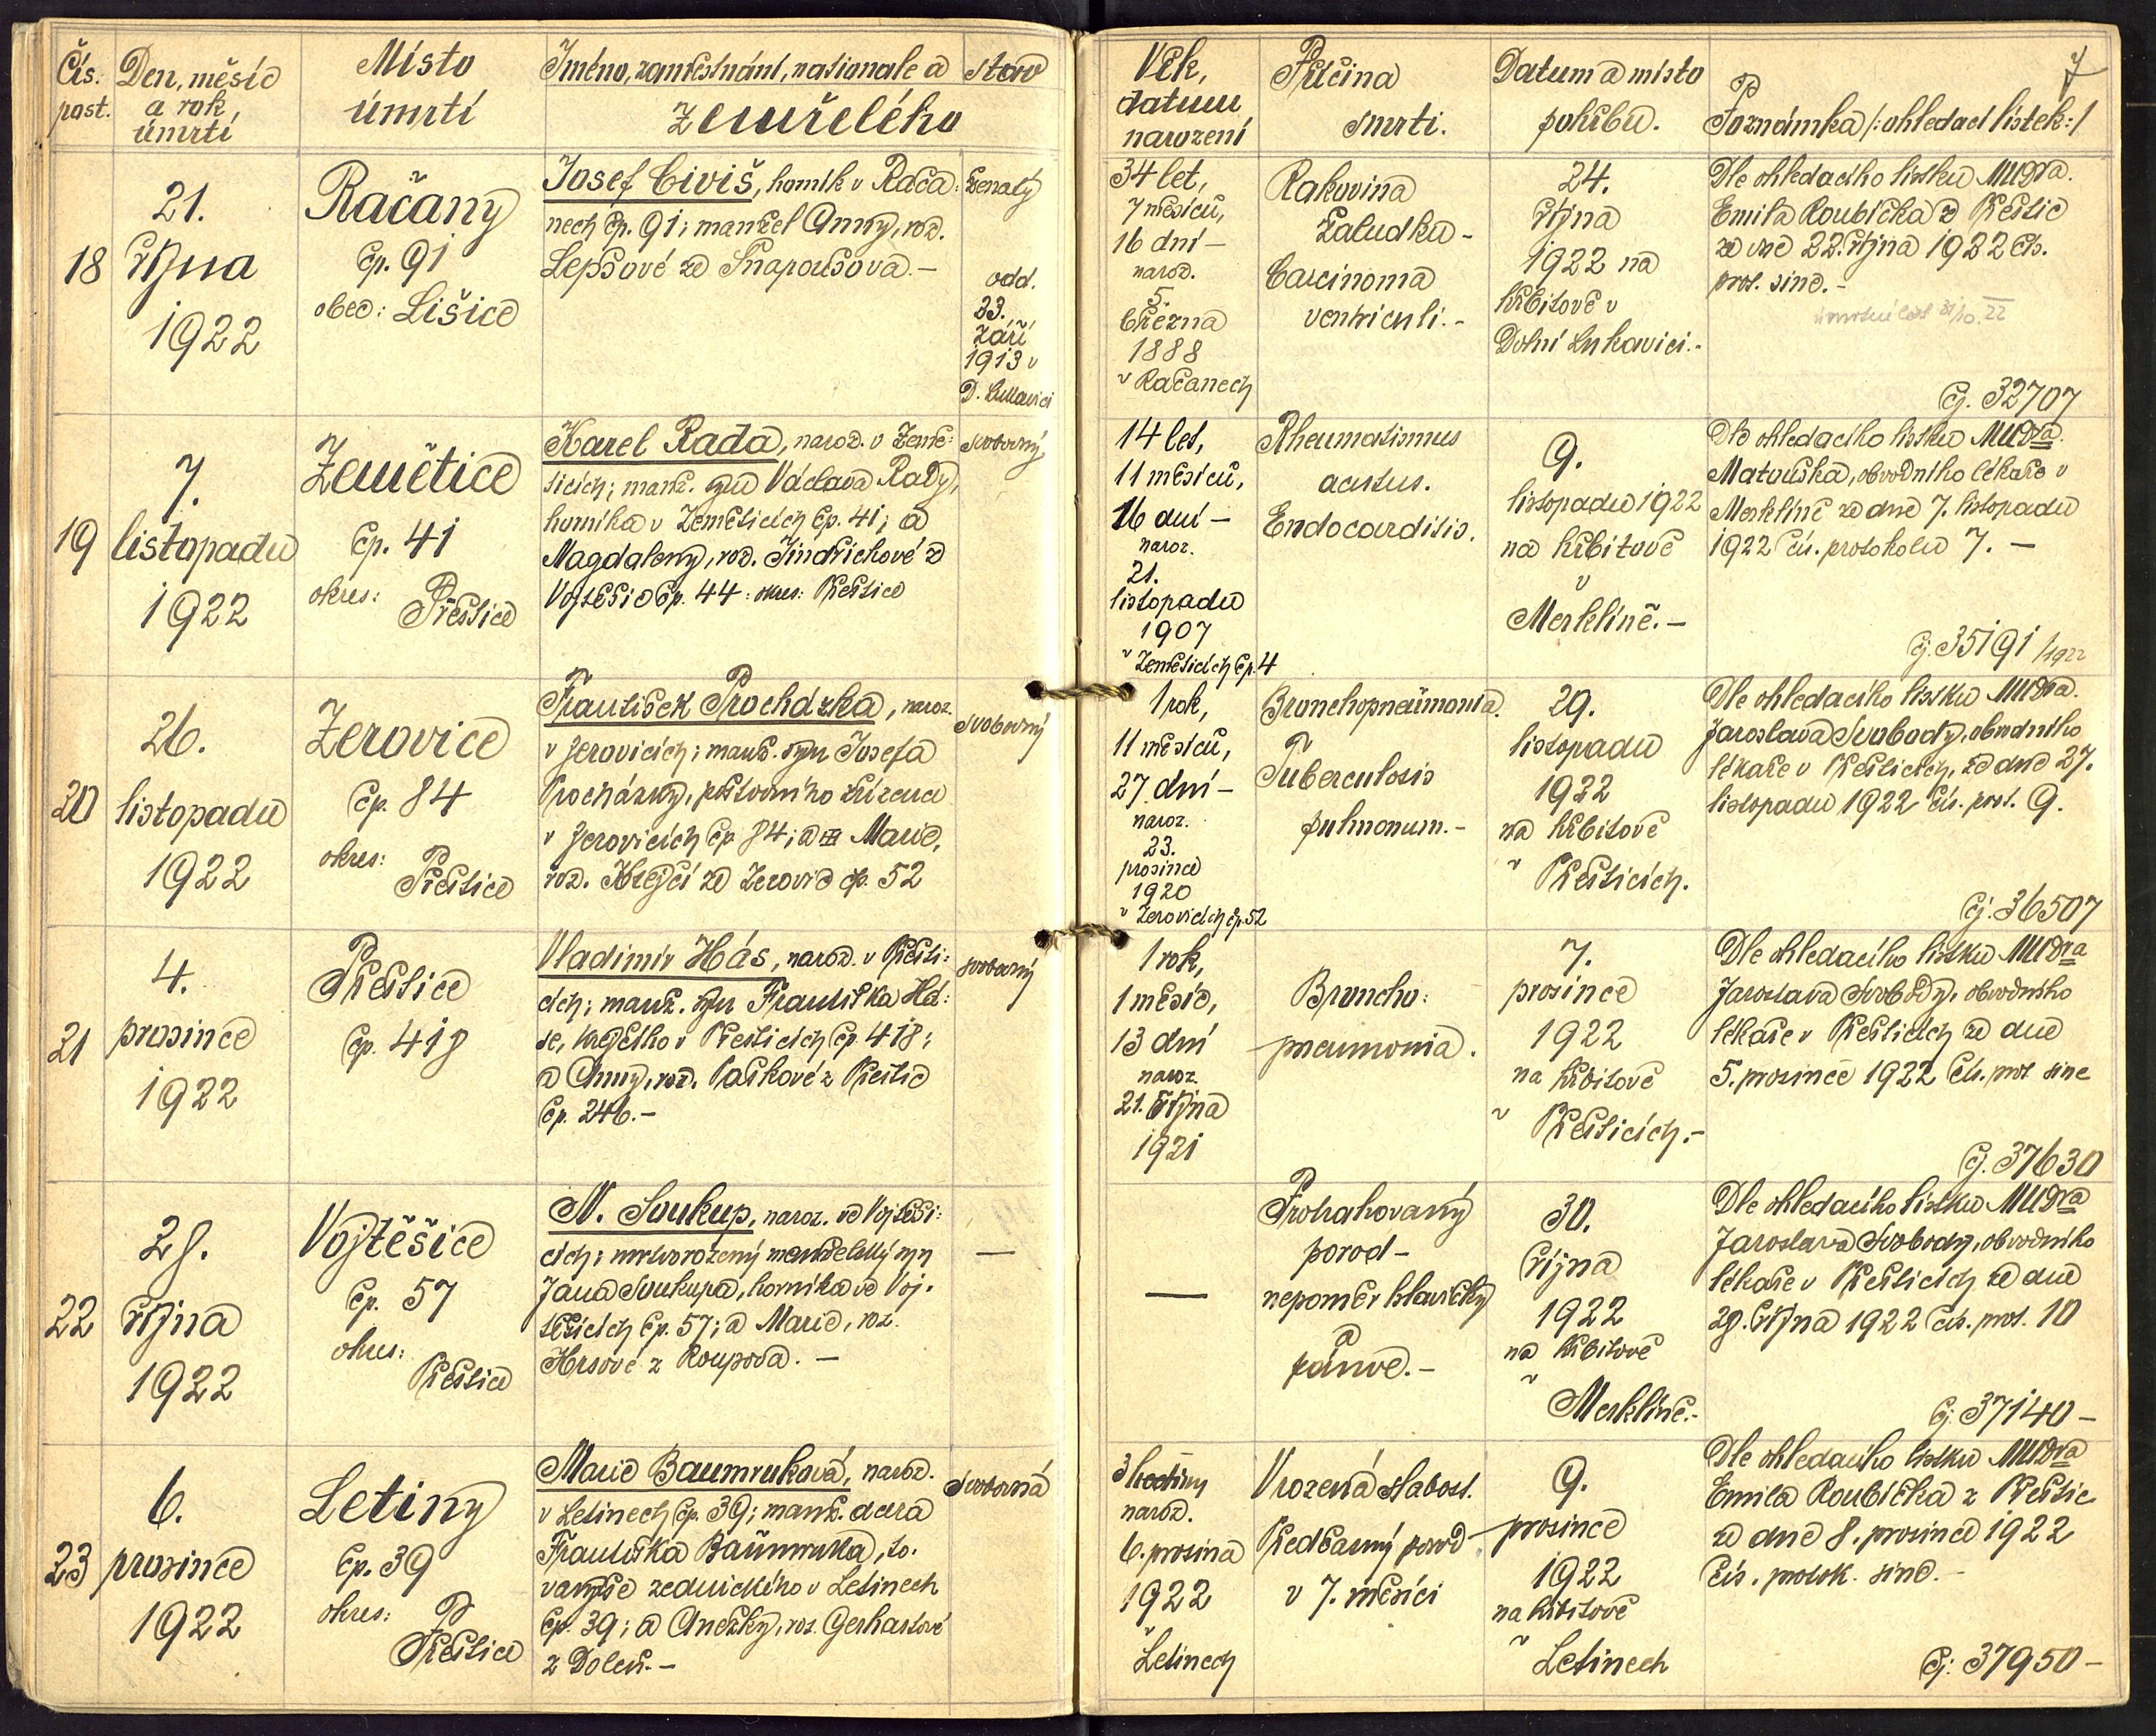 Čís. post.
Den, měsíc a rok, úmrtí
Místo úmrtí
Jméno, zaměstnání, nationale a stav
zemřelého
Věk, datum narození
Příčina smrti.
Datum a místo pohřbu.
Poznámka /:ohledací lístek:/
7
18
21.
října
1922
Račany
čp. 91
obec: Lišice
Josef Civiš, horník v Rača:
nech čp. 91; manžel Anny, roz.
Lepšové ze Snapoušova.-
ženatý
odd.
23.
září
1913 v
D. Lukavici
34 let,
7 měsíců,
16 dní -
naroz.
5.
března
1888
v Račanech
Rakovina
žaludku -
Carcinoma
ventriculi.-
24.
října
1922 na
hřbitově v
Dolní Lukavici.-
Dle ohledacího lístku MUDra.
Emila Roubíčka z Přeštic
ze dne 22. října 1922 čís.
prot. sine.-
úmrtní list 31/10. 22
Čj. 32707
19
7.
listopadu
1922
Zemětice
čp. 41
okres:
Přeštice
Karel Rada, naroz. v Země:
ticích; manž. syn Václava Rady,
horníka v Zeměticích čp. 41; a
Magdaleny, roz. Jindřichové z
Vojtěšic čp. 44: okres: Přeštice
svobodný
14 let,
11 měsíců,
16 dní -
naroz.
21.
listopadu
1907
v Zeměticích čp. 4
Rheumatismus
acutus.
Endocarditis.
9.
listopadu 1922
na hřbitově
v
Merklíně.-
Dle ohledacího lístku MUDra.
Matouška, obvodního lékaře v
Merklíně ze dne 7. listopadu
1922 čís. protokolu 7. -
Čj. 35191/1922
20
26.
listopadu
1922
Žerovice
čp. 84
okres:
Přeštice
František Procházka, naroz.
v Žerovicích; manž. syn Josefa
Procházky,
v Žerovicích čp. 84; a Marie,
roz. Krejčí ze Žerovic čp. 52
svobodný
1 rok,
11 měsíců,
27 dní -
naroz.
23.
prosince
1920
v Žerovicích čp. 52
Bronchopneumonia.
Tuberculosis
pulmonum.-
29.
listopadu
1922
na hřbitově
v Přešticích.
Dle ohledacího lístku MUDra.
Jaroslava Svobody, obvodního
lékaře v Přešticích, ze dne 27.
listopadu 1922 čís. prot. 9.
Čj. 36507
21
4.
prosince
1922
Přeštice
čp. 418
Vladimír Hás, naroz. v Přešti:
cích; manž. syn Františka Há:
se, krejčího v Přešticích čp. 418;
a Anny, roz. Paškové z Přeštic
čp. 246.-
svobodný
1 rok,
1 měsíc,
13 dní
naroz.
21. října
1921
Broncho:
pneumonia.
7.
prosince
1922
na hřbitově
v Přešticích.-
Dle ohledacího lístku MUDra
Jaroslava Svobody, obvodního
lékaře v Přešticích ze dne
5. prosince 1922 čís. prot sine
Čj. 37630
22
28.
října
1922
Vojtěšice
čp. 57
okres:
Přeštice
N. Soukup, naroz. ve Vojtěši:
cích; mrtvorozený manželský syn
Jana Soukupa, horníka ve Voj.
těšicích čp. 57; a Marie, roz.
Hrsové z Roupova. -
-
-
Protrahovaný
porod -
nepoměr hlavičky
a
pánve.-
30.
října
1922
na hřbitově
v
Merklíně.-
Dle ohledacího lístku MUDra
Jaroslava Svobody, obvodního
lékaře v Přešticích ze dne
28. října 1922 čís. prot. 10
Čj. 37140 -
23
6.
prosince
1922
Letiny
čp. 39
okres:
Přeštice
Marie Baumruková, naroz.
v Letinech čp. 39; manž. dcera
Františka Baumruka, to.
varyše zednického v Letinech
čp. 39; a Anežky, roz. Gerhartové
z Dolců.-
svobodná
3 hodiny
naroz.
6. prosince
1922
v Letinech
Vrozená slabost.
Předčasný porod
v 7. měsíci
9.
prosince
1922
na hřbitově
v Letinech
Dle ohledacího lístku MUDra
Emila Roubíčka z Přeštic
ze dne 8. prosince 1922
čís. protok. sine.-
Čj: 37950 -